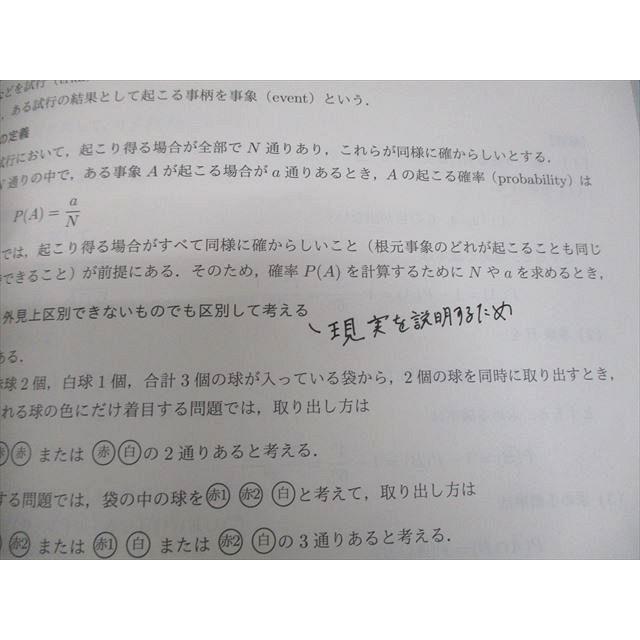 などを試行
，ある試行の結果として起こる事柄を事象（event）という．
の定義
試行において，起こり得る場合が全部で N 通りあり，これらが同様に確からしいとする．
N 通りの中で，ある事象 A が起こる場合が a 通りあるとき，A の起こる確率（probability）は
P(A) = a/N
では，起こり得る場合がすべて同様に確からしいこと（根元事象のどれが起こることも同じ
できること）が前提にある．そのため，確率 P(A) を計算するために N や a を求めるとき，
外見上区別できないものでも区別して考える
現実を説明するため
ある．
赤球 2 個，白球 1 個，合計 3 個の球が入っている袋から，2 個の球を同時に取り出すとき，
れる球の色にだけ着目する問題では，取り出し方は
赤 赤 または 赤 白 の 2 通りあると考える．
する問題では，袋の中の球を 赤1 赤2 白 と考えて，取り出し方は
赤2 または 赤1 白 または 赤2 白 の 3 通りあると考える．